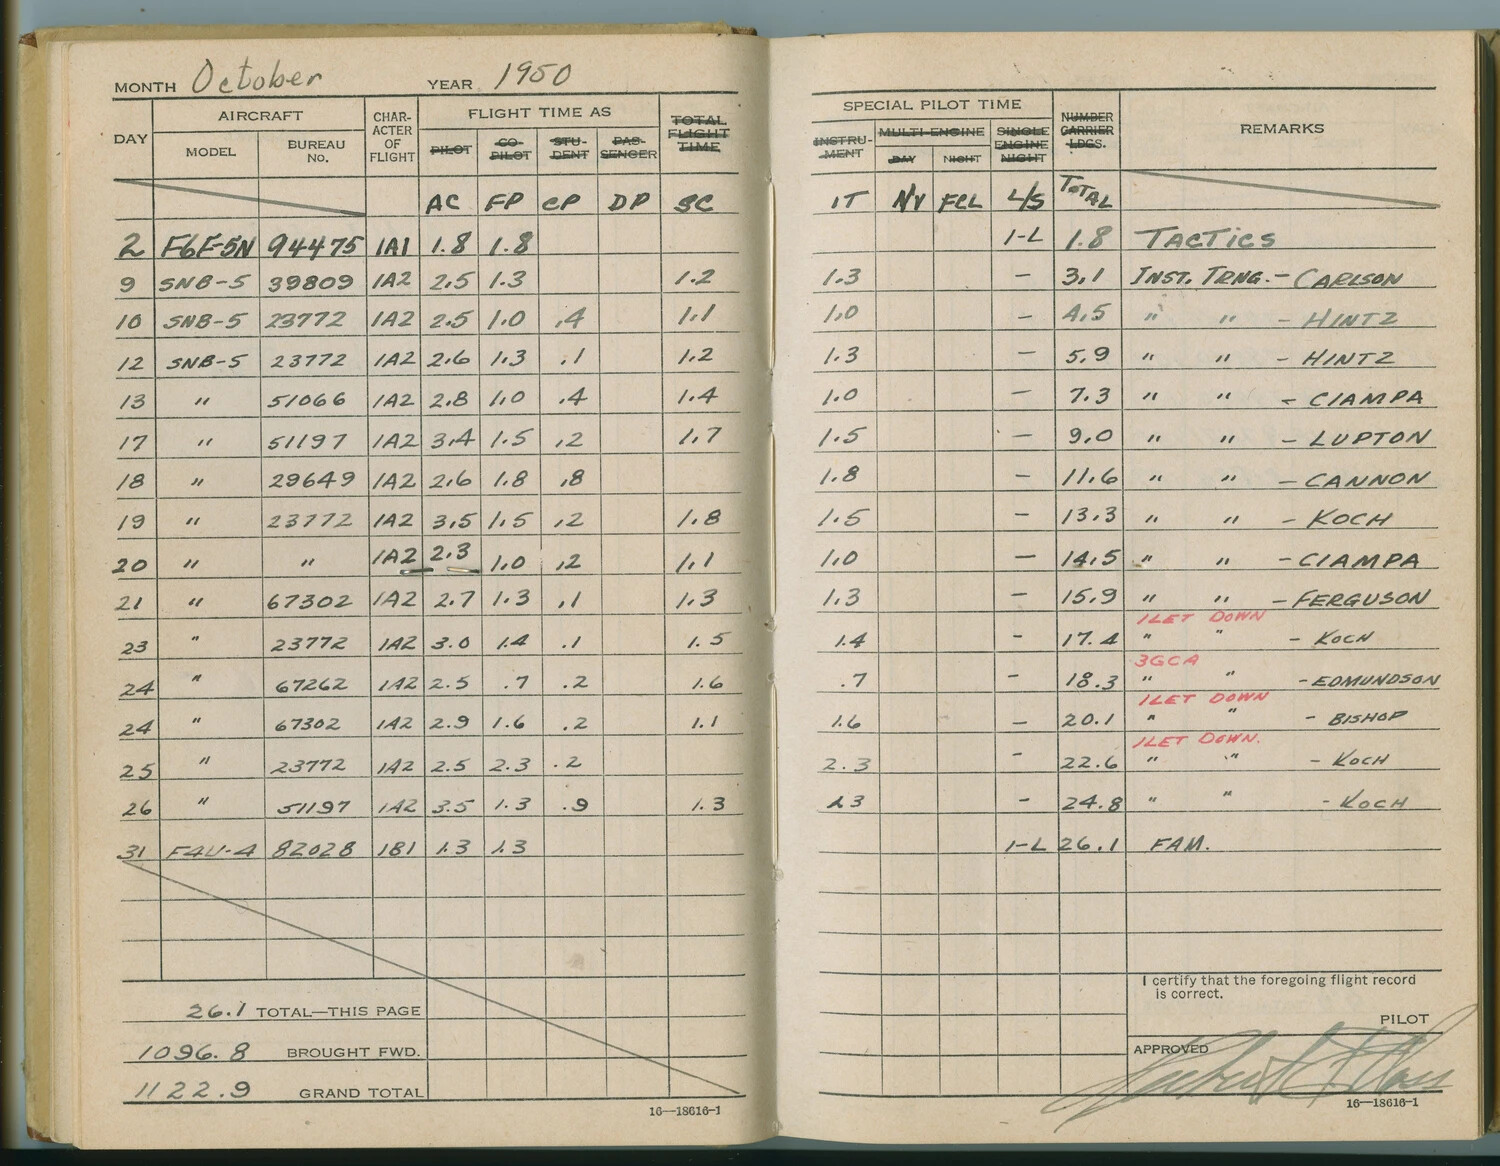 MONTH October YEAR 1950
DAY AIRCRAFT CHAR-ACTER OF FLIGHT FLIGHT TIME AS TOTAL FLIGHT TIME
MODEL BUREAU No. PILOT CO-PILOT STU-DENT PAS-SENGER
AC FP CP DP SC
2 F6F-5N 94475 1A1 1.8 1.8
9 SNB-5 39809 1A2 2.5 1.3 1.2
10 SNB-5 23772 1A2 2.5 1.0 .4 1.1
12 SNB-5 23772 1A2 2.6 1.3 .1 1.2
13 " 51066 1A2 2.8 1.0 .4 1.4
17 " 51197 1A2 3.4 1.5 .2 1.7
18 " 29649 1A2 2.6 1.8 .8
19 " 23772 1A2 3.5 1.5 .2 1.8
20 " " 1A2 2.3 1.0 .2 1.1
21 " 67302 1A2 2.7 1.3 .1 1.3
23 " 23772 1A2 3.0 1.4 .1 1.5
24 " 67262 1A2 2.5 .7 .2 1.6
24 " 67302 1A2 2.9 1.6 .2 1.1
25 " 23772 1A2 2.5 2.3 .2
26 " 51197 1A2 3.5 1.3 .9 1.3
31 F4U-4 82028 1B1 1.3 1.3
26.1 TOTAL—THIS PAGE
1096.8 BROUGHT FWD.
1122.9 GRAND TOTAL
16—18616-1
SPECIAL PILOT TIME NUMBER CARRIER LDGS. REMARKS
INSTRU-MENT MULTI-ENGINE SINGLE ENGINE NIGHT
DAY NIGHT
IT NV FCL L/S TOTAL
1-L 1.8 TACTICS
1.3 — 3.1 INST. TRNG. - CARLSON
1.0 — 4.5 " " - HINTZ
1.3 — 5.9 " " - HINTZ
1.0 — 7.3 " " - CIAMPA
1.5 — 9.0 " " - LUPTON
1.8 — 11.6 " " - CANNON
1.5 — 13.3 " " - KOCH
1.0 — 14.5 " " - CIAMPA
1.3 — 15.9 " " - FERGUSON
1 LET DOWN
1.4 - 17.4 " " - KOCH
3GCA
.7 - 18.3 " " - EDMUNDSON
1 LET DOWN
1.6 - 20.1 " " - BISHOP
1 LET DOWN.
2.3 - 22.6 " " - KOCH
- 24.8 " " - KOCH
1-L 26.1 FAM.
I certify that the foregoing flight record
is correct.
PILOT
APPROVED
16—18616-1